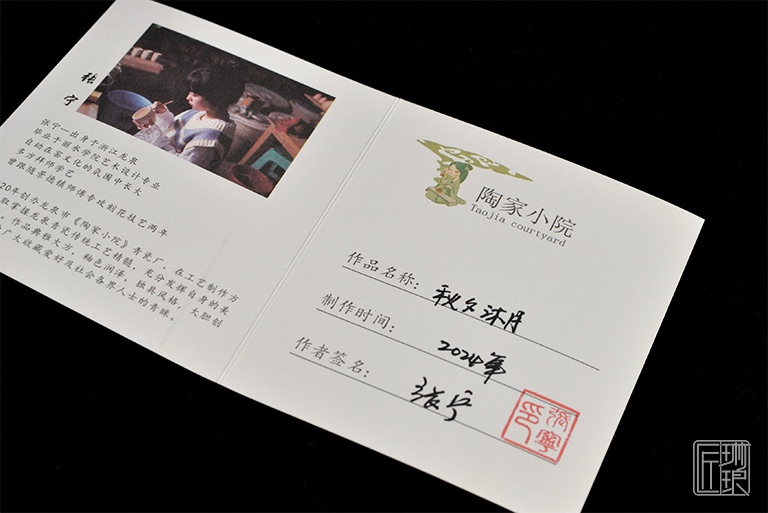 张
宁
张宁—出身于浙江龙泉
毕业于丽水学院艺术设计专业
自幼在窑文化的氛围中长大
多方拜师学艺
曾跟随景德镇师傅专攻刻花技艺两年
20年创办龙泉市《陶家小院》青瓷厂，在工艺制作方
取掌握龙泉青瓷传统工艺精髓，充分发挥自身的美
。作品典雅大方，釉色润泽，独具风格，大胆创
广大收藏爱好及社会各界人士的青睐。
陶家小院
Taojia courtyard
作品名称：秋夕沐月
制作时间：2024年
作者签名：张宁
張寧印
匠琳琅